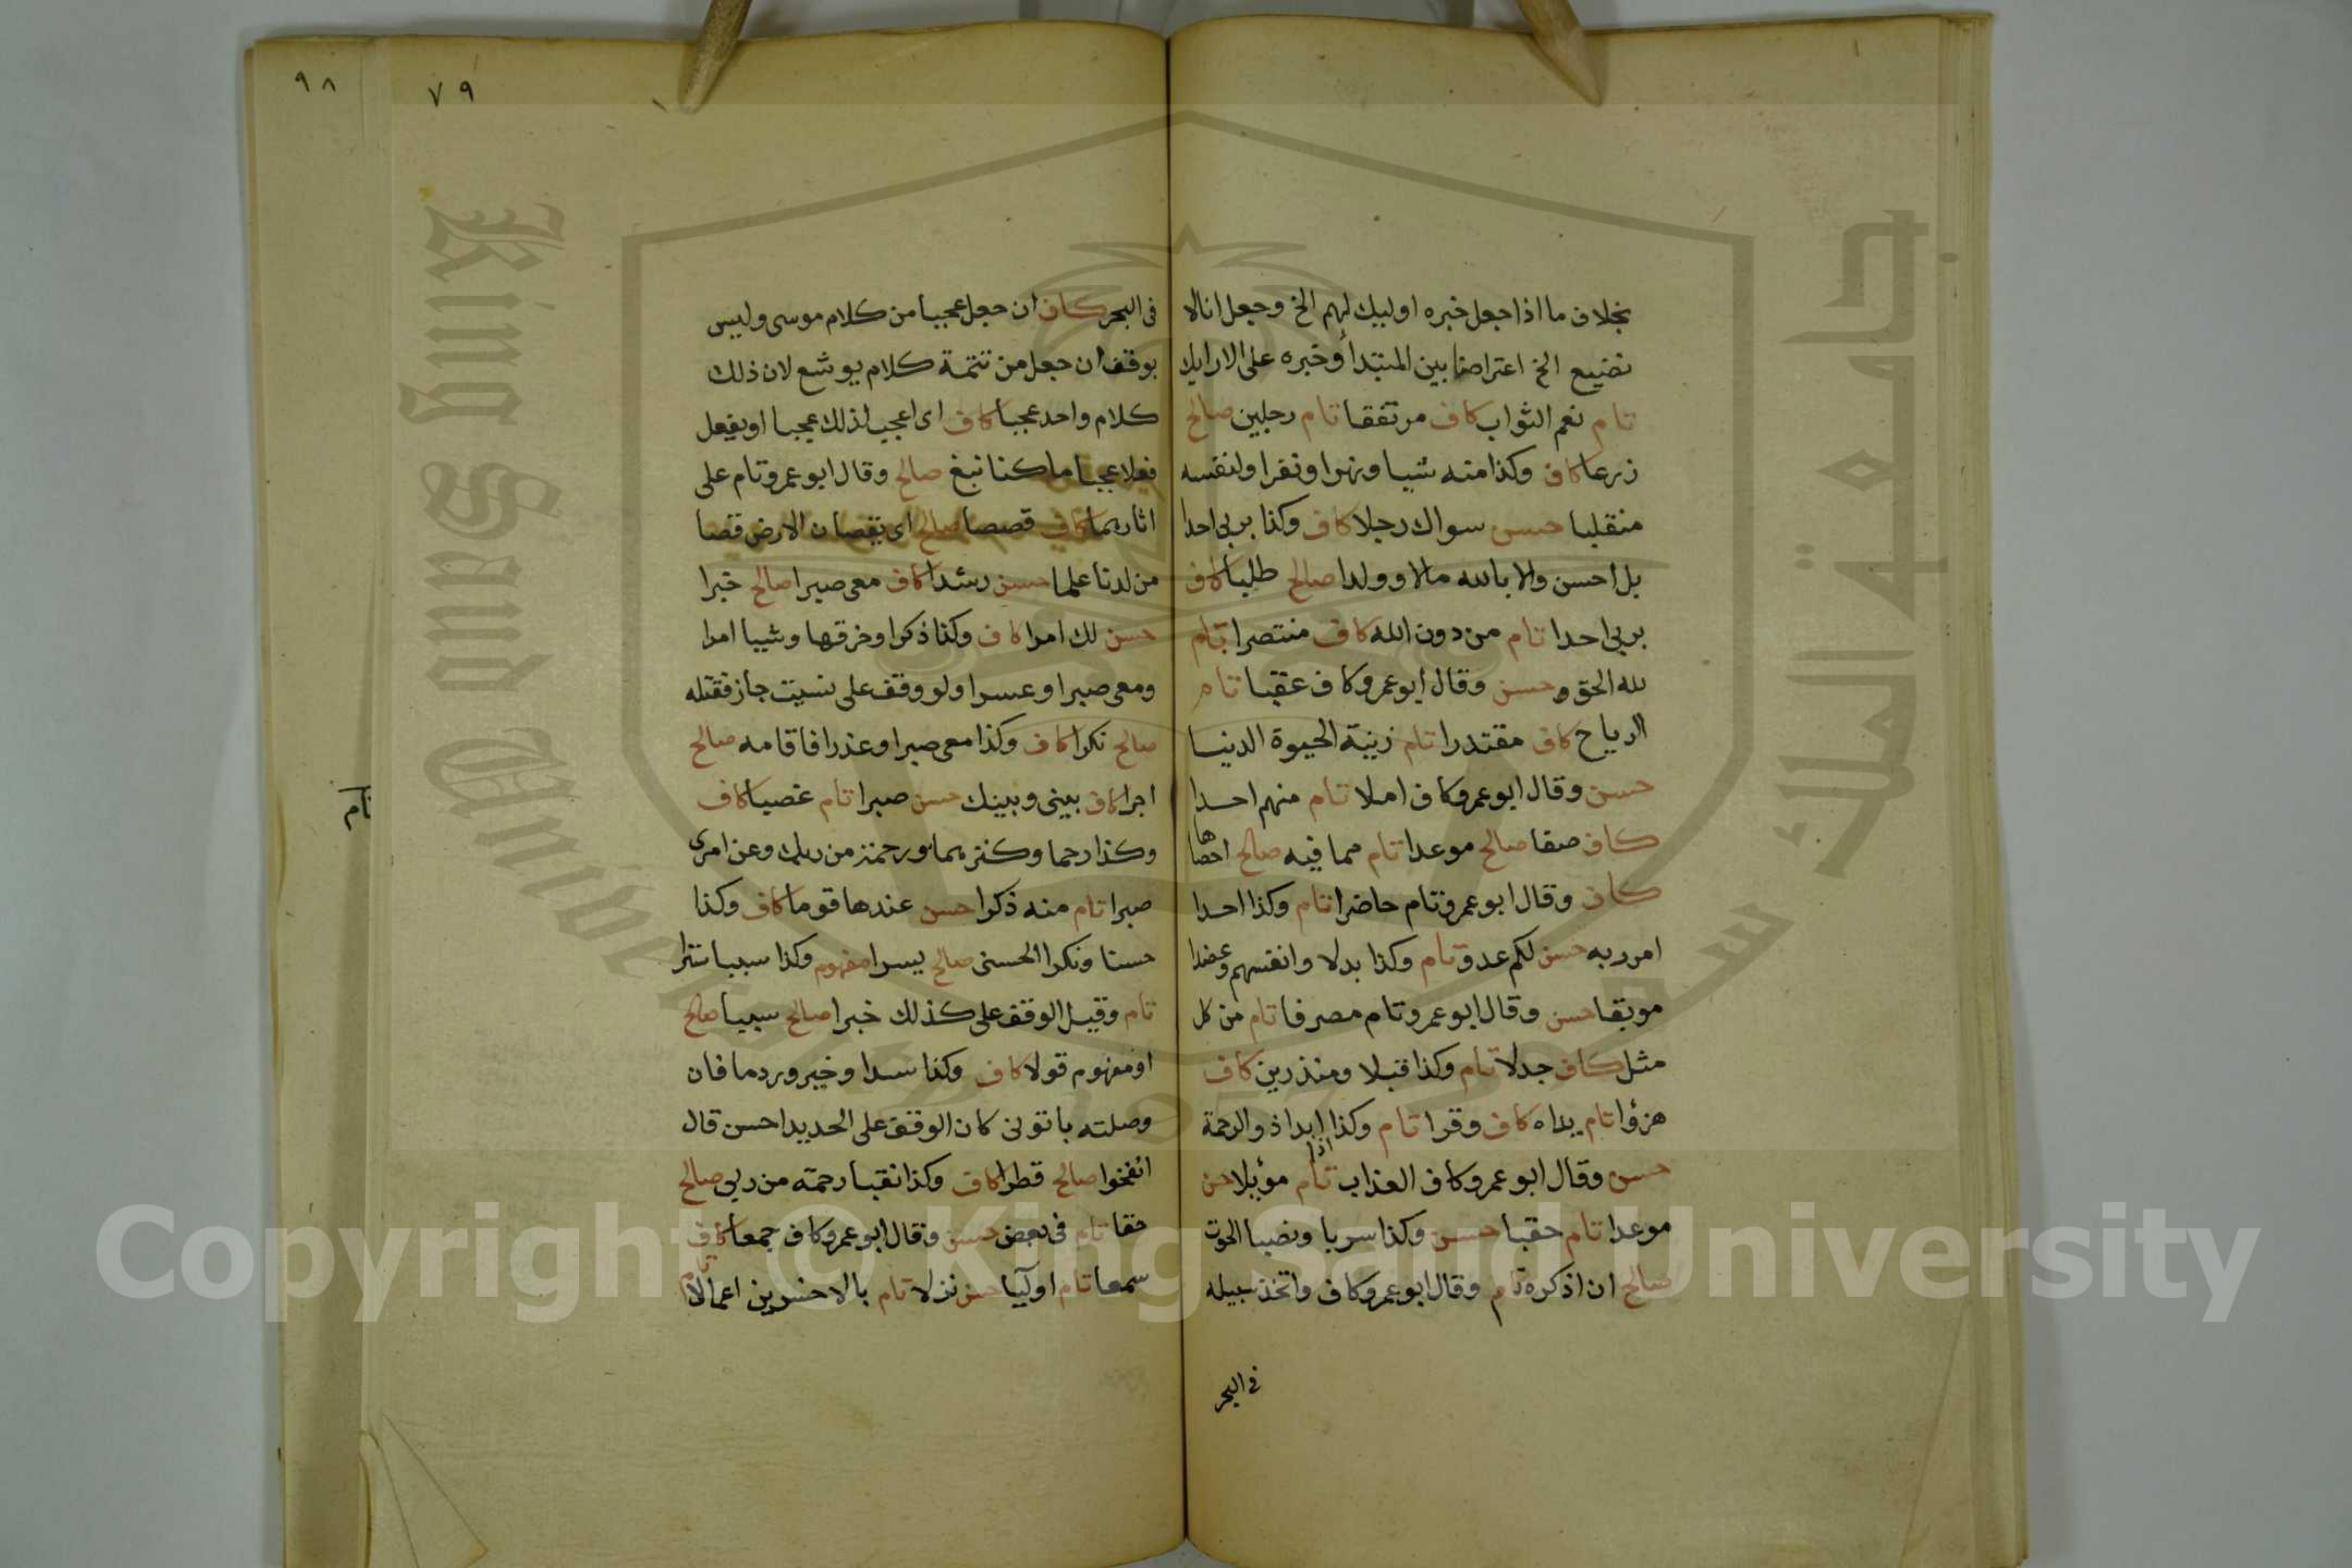 بخلاف ما اذا جعل خبره اوليك لهم الخ وجعل انالا
نضيع الخ اعتراضا بين المبتدأ وخبره على الارايك
تام نعم الثواب كاف مرتفقا تام رجلين صالح
زرعا كاف وكذا منه شيا ونهرا ونفرا ولنفسه
منقلبا حسن سواك رجلا كاف وكذا بربى احدا
بل احسن والا بالله مالا وولدا صالح طلبا كاف
بربى احدا تام من دون الله كاف منتصرا تام
لله الحق حسن وقال ابو عمرو كاف عقبا تام
الرياح كاف مقتدرا تام زينة الحيوة الدنيا
حسن وقال ابو عمرو كاف املا تام منهم احدا
كاف صفا صالح موعدا تام مما فيه صالح احصاها
كاف وقال ابو عمرو تام حاضرا تام وكذا احدا
امر ربه حسن لكم عدو تام وكذا بدلا وانفسهم وعضدا
موبقا حسن وقال ابو عمرو تام مصرفا تام من كل
مثل كاف جدلا تام وكذا قبلا ومنذرين كاف
هزؤا تام يداه كاف وقرا تام وكذا اذا ابدا ذو الرحمة
حسن وقال ابو عمرو كاف العذاب تام موئلا حسن
موعدا تام حقبا حسن وكذا سربا ونصبا الحوت
صالح ان اذكره تام وقال ابو عمرو كاف واتخذ سبيله
فى البحر
٩٨
٧٩
فى البحر كاف ان جعل عجبا من كلام موسى وليس
بوقف ان جعل من تتمة كلام يوشع لان ذلك
كلام واحد عجبا كاف اى اعجب لذلك عجبا او يفعل
فعلا عجبا ما كنا نبغ صالح وقال ابو عمرو تام على
اثارهما كاف قصصا صالح اى يقصان الارض قصا
من لدنا علما حسن رشدا كاف معى صبرا صالح خبرا
حسن لك امرا كاف وكذا ذكرا وخرقها وشيا امرا
ومعى صبرا وعسرا ولو وقف على نسيت جاز فقتله
صالح نكرا كاف وكذا معى صبرا وعذرا فاقامه صالح
اجرا كاف بينى وبينك حسن صبرا تام غصبا كاف
تام
وكذا رحما وكنز لهما ورحمة من ربك وعن امرى
صبرا تام منه ذكرا حسن عندها قوما كاف وكذا
حسنا ونكرا الحسنى صالح يسرا مفهوم وكذا سببا سترا
تام وقيل الوقف على كذلك خبرا صالح سببا صالح
او مفهوم قولا كاف وكذا سدا وخير وردما فان
وصلته باتونى كان الوقف على الحديد احسن قال
انفخوا صالح قطرا كاف وكذا نقبا رحمة من ربى صالح
حقا تام فى بعض حسن وقال ابو عمرو كاف جمعا كاف
سمعا تام اوليا حسن نزلا تام بالاخسرين اعمالا تام
King Saud University
Copyright © King Saud University
جامعة الملك سعود
1957